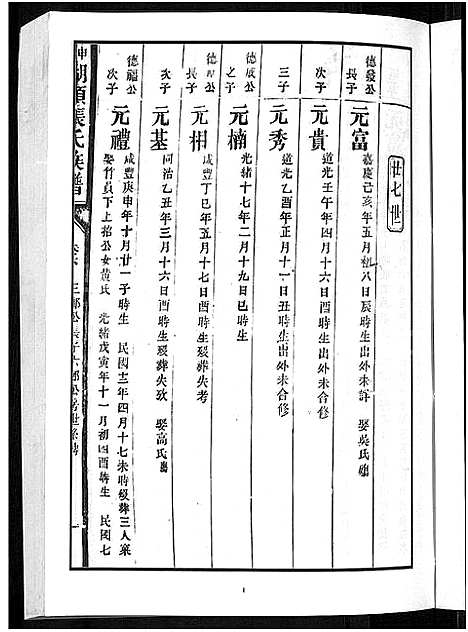 廿七世
德發公
長子
元富
嘉慶己亥年五月初八日辰時生出外未詳 娶吳氏
次子
元貴
道光壬午年四月十六日酉時生出外未合修
三子
元秀
道光乙酉年正月十一日丑時生出外未合修
德成公
之子
元楠
光緒十七年二月十九日巳時生
長子
元相
咸豐丁巳年五月十七日酉時生歿葬失考
次子
元基
同治乙丑年三月十六日酉時生歿葬失攷 娶高氏
德福公
次子
元禮
咸豐庚申年十月廿一子時生 民國十二年四月十七未時歿葬三人寀
娶竹員下上招公女黃氏 光緒戊寅年十一月初四酉時生 民國七
申湖頭張氏族譜
三郎公長子六郎公
一
1